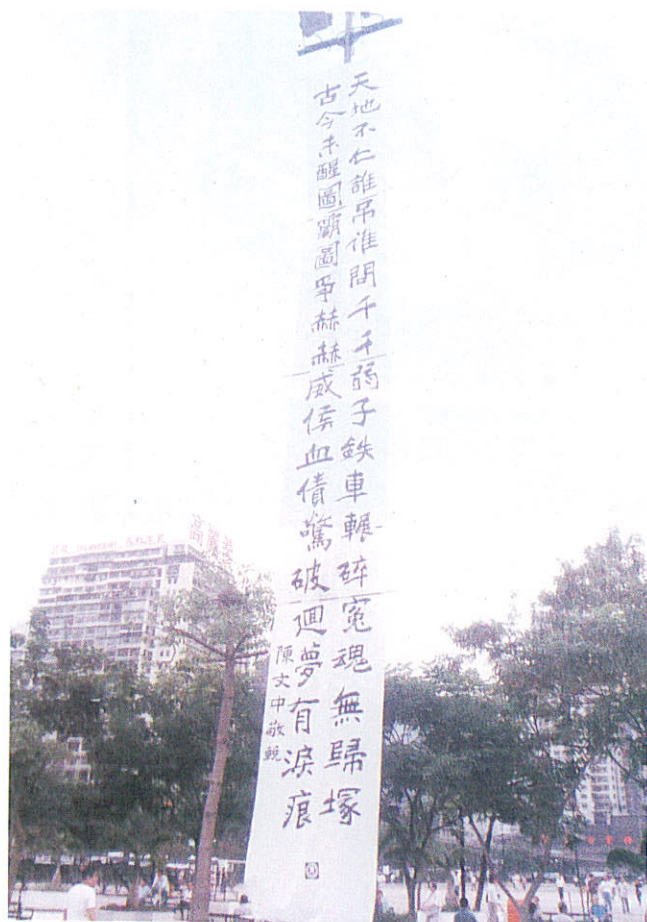 天地不仁誰吊誰問千千弱子鉄車輾碎寃魂無歸塚
古今未醒圖霸圖爭赫赫威侯血債驚破迴夢有淚痕
陳文中敬輓
高麗姜